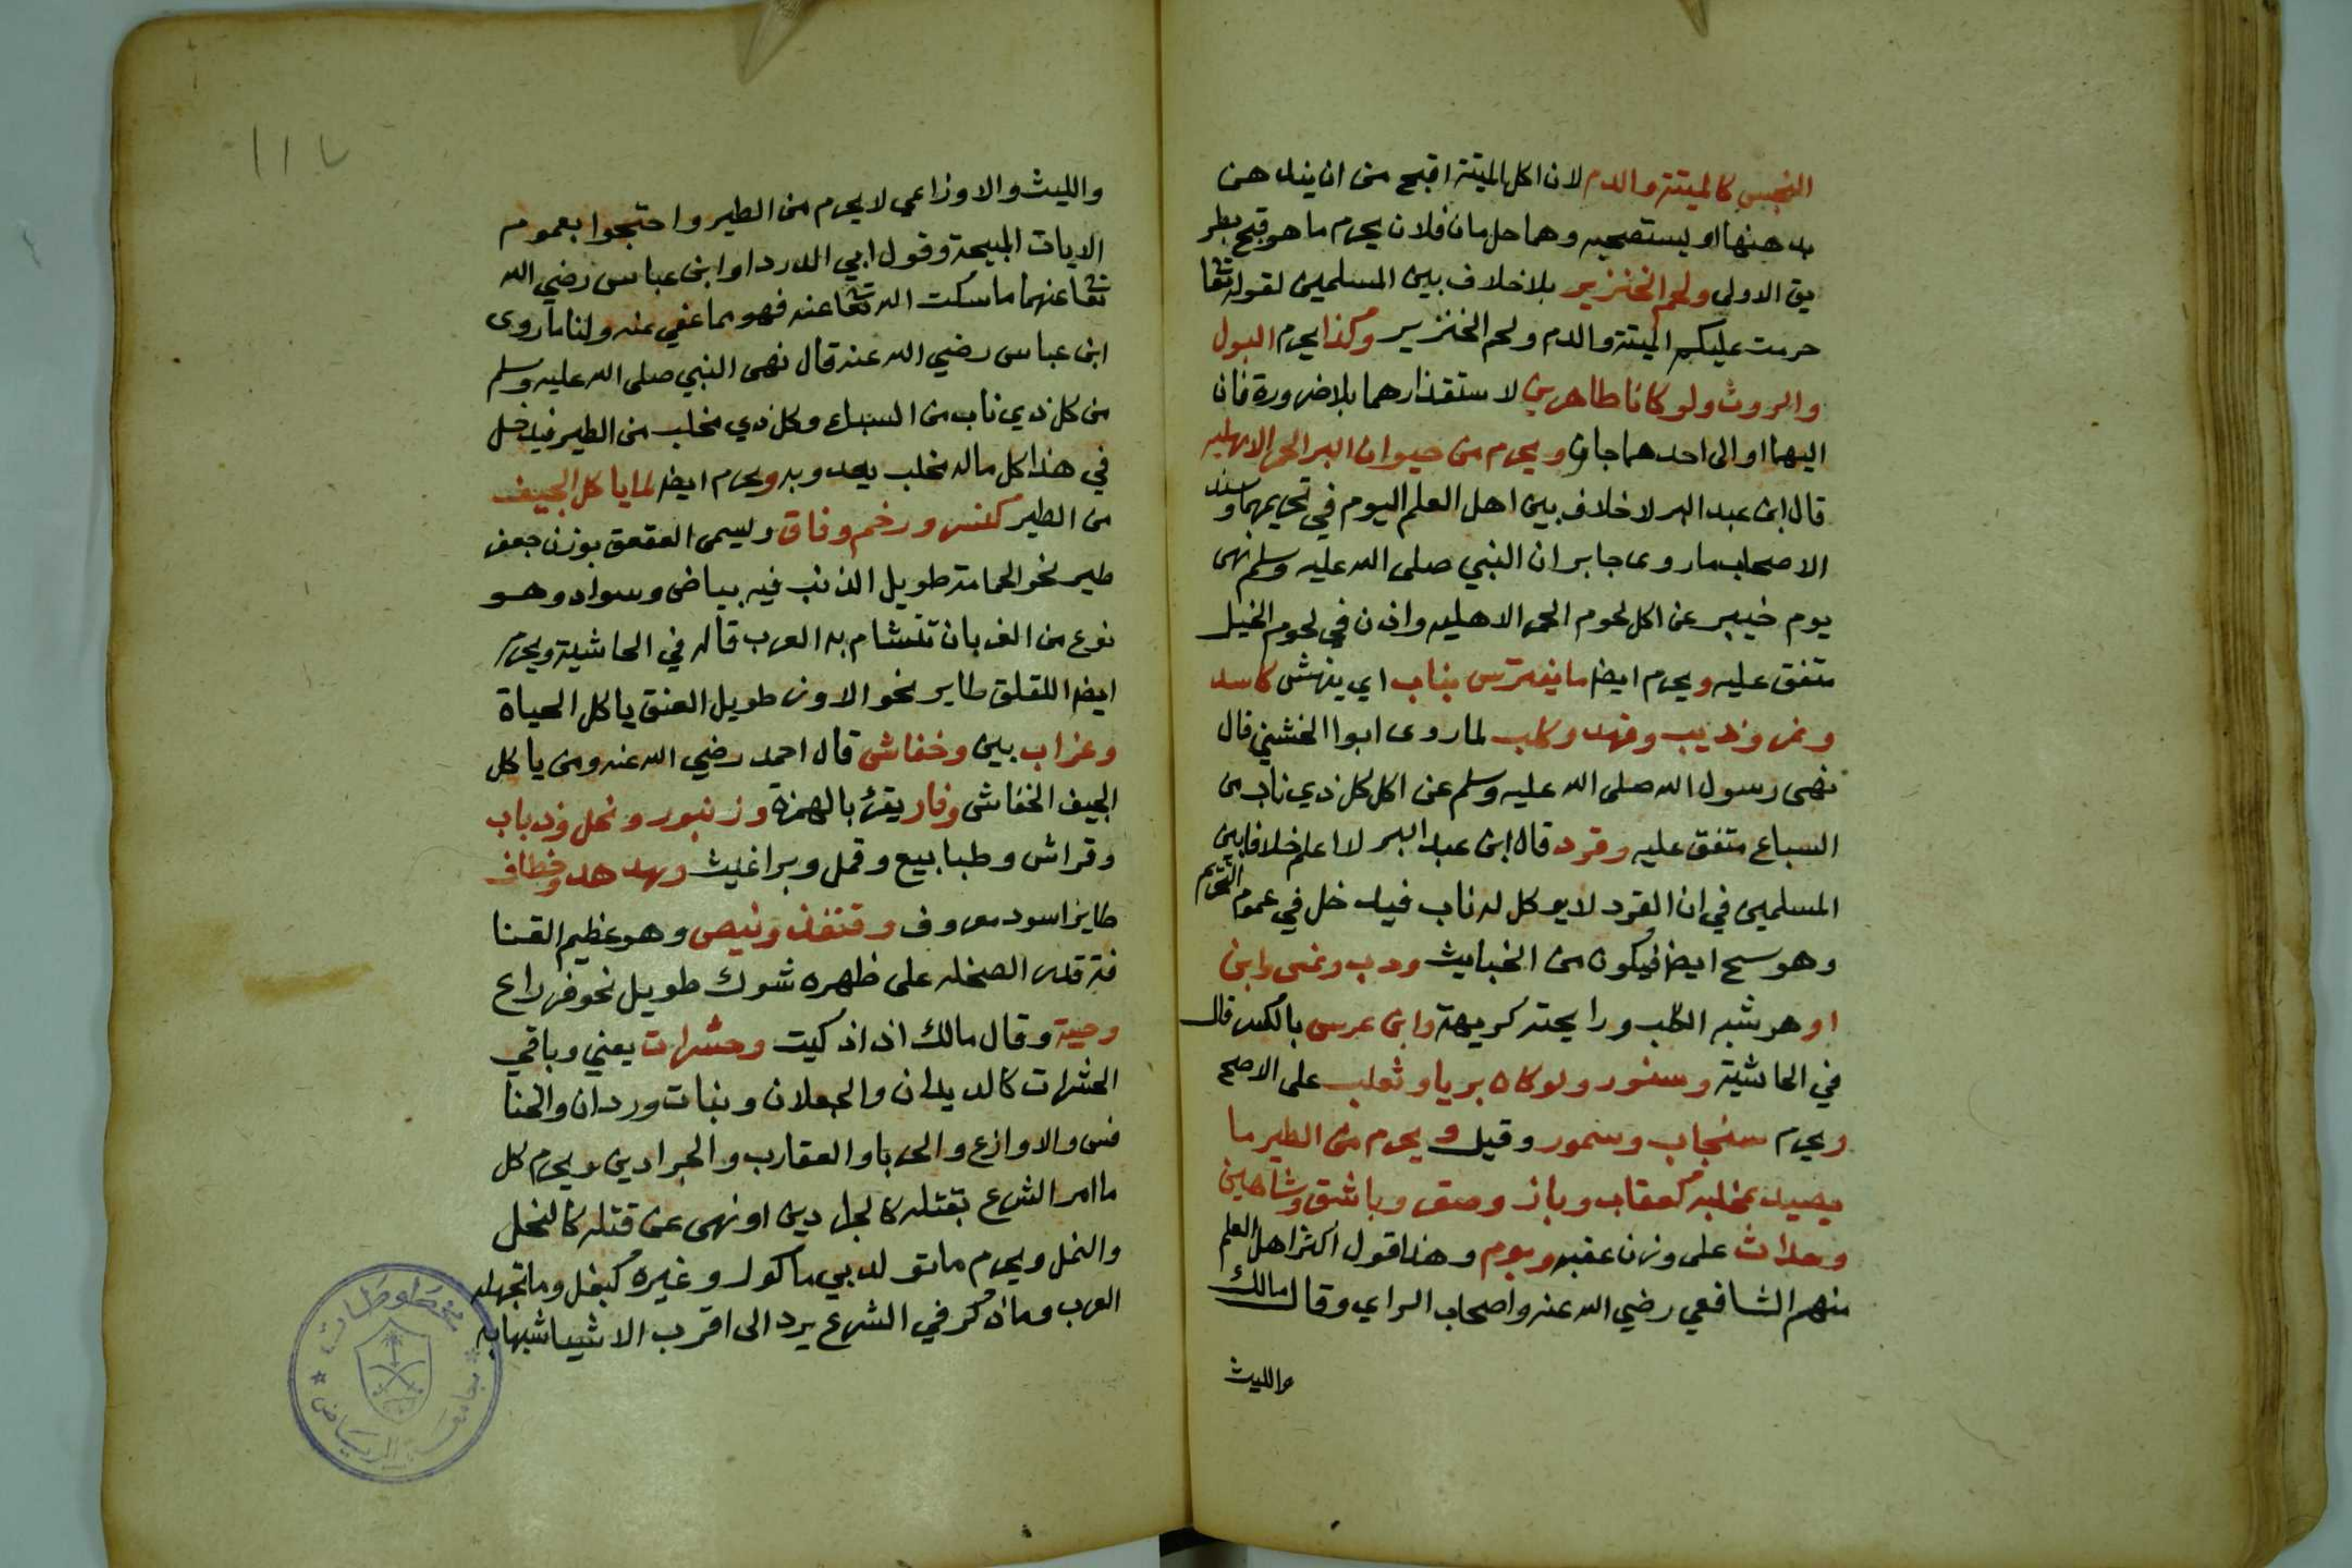 النجس كالميتة والدم لان اكل الميتة اقبح من ان يندهن
بدهنها او يستصبح به وهما حرمان فلان يحرم ما هو قبح بطر
يق الاولى ولحم الخنزير بلا خلاف بين المسلمين لقوله تعا
حرمت عليكم الميتة والدم ولحم الخنزير وكذا يحرم البول
والروث ولو كانا طاهرين لاستقذارهما بلا ضرورة فان
اليهما او الى احدهما جان ويحرم من حيوان البر الحمر الاهليه
قال ابن عبد البر لا خلاف بين اهل العلم اليوم في تحريمها وسند
الاصحاب ما روى جابر ان النبي صلى الله عليه وسلم نهى
يوم خيبر عن اكل لحوم الحمر الاهليه واذن في لحوم الخيل
متفق عليه ويحرم ايضا ما يفترس بناب اي ينهش كاسد
ونمر وذيب وفهد وكلب لما روى ابوا الخشني قال
نهى رسول الله صلى الله عليه وسلم عن اكل كل ذي ناب من
السباع متفق عليه وقرد قال ابن عبد البر لا اعلم خلافا بين
المسلمين في ان القرد لا يوكل له ناب فيدخل في عموم التحريم
وهو سح ايضا فيكون من الخبايث ودب ونمس وابن
اوهر شبه الكلب ورايحته كريهة وابن عرس بالكسر قال
في الحاشية وسنور ولو كان بريا وثعلب على الاصح
ويحرم سنجاب وسمور وفيل ويحرم من الطير ما
يصيد بمخلبه كعقاب وباز وصقر وباشق وشاهين
وحداث على وزن عقبه وبوم وهذا قول اكثر اهل العلم
منهم الشافعي رضي الله عنه واصحاب الراي وقال مالك
والليث
١١٢
والليث والاوزاعي لا يحرم من الطير واحتجوا بعموم
الايات المبيحة وقول ابي الدردا وابن عباس رضي الله
تعا عنهما ما سكت الله تعا عنه فهو مما عفي عنه ولنا ما روى
ابن عباس رضي الله عنه قال نهى النبي صلى الله عليه وسلم
من كل ذي ناب من السباع وكل ذي مخلب من الطير فيدخل
في هذا كل ماله مخلب يعدو به ويحرم ايضا لما ياكل الجيف
من الطير كنسر ورخم وقاق ويسمى العقعق بوزن جعفر
طير نحو الحمامة طويل الذنب فيه بياض وسواد وهو
نوع من الغربان تتشام به العرب قاله في الحاشية ويحرم
ايضا اللقلق طاير نحو الاوز طويل العنق ياكل الحياة
وغراب بين وخفاش قال احمد رضي الله عنه ومن ياكل
الجيف الخفاش وفار يقرئ بالهمزة وزنبور ونحل وذباب
وفراش وطبابيع وقمل وبراغيث وهدهد وخطاف
طايز اسود معروف وقنفذ ونيص وهو عظيم القنا
فذ قدر الصخله على ظهره شوك طويل نحو ذراع
وحية وقال مالك اذ اذ كيت وحشرات يعني وباقي
الحشرات كالديدان والجعلان وبنات وردان والخنا
فس والاوازع والحربا والعقارب والجرادين ويحرم كل
ما امر الشرع بقتله كالجرادين او نهى عن قتله كالنحل
والنمل ويحرم ما تولد بين ماكول وغيره كبغل وما تجهله
العرب وما ذكر في الشرع يرد الى اقرب الاشيا شبها به
مخطوطات
جامعة الرياض